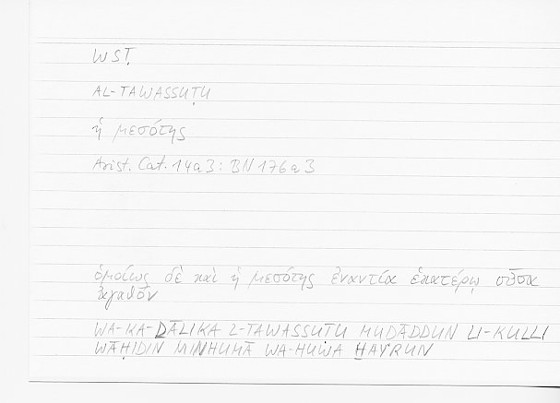 WSṬ
AL-TAWASSUṬU
ἡ μεσότης
Arist. Cat. 14a3 : BN 176a3
ὁμοίως δὲ καὶ ἡ μεσότης ἐναντία ἑκατέρῳ οὖσα
ἀγαθόν
WA-KA-ḎĀLIKA L-TAWASSUṬU MUḌĀDDUN LI-KULLI
WĀḤIDIN MINHUMĀ WA-HUWA ḪAYRUN